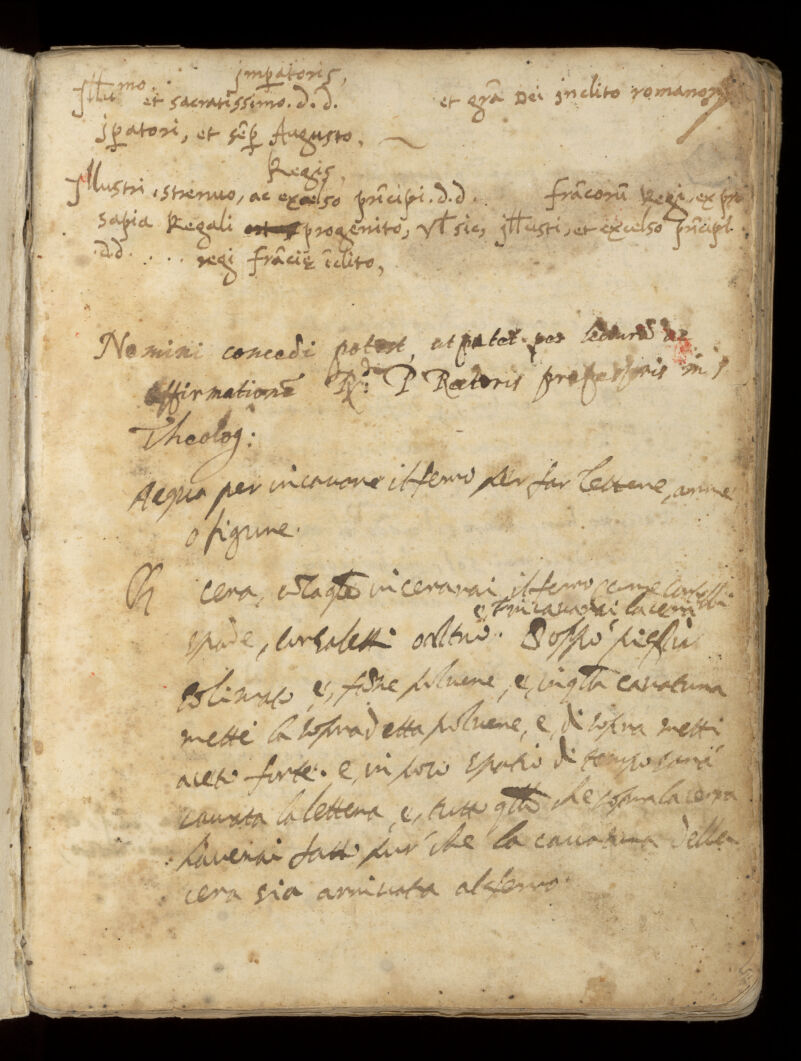 Imp̄atoris,
Illu^mo. et sacratissimo. d. d. et gr̄a Dei inclito romanor̄
Ip̄atori, et sēp Augusto,
Regis,
Illustri, strenuo, ac excelso pr̄icipi. d. d. frācorū Regi, ex pro
sapia Regali progenito, vl̄ sic, Ill̄usti, et excelso pr̄icipi.
d. d. . . . . regi frācię īclito,
Nemini concedi potest, ut patet per lecturā ac
affirmationē R.di P Rectoris professoris in s
Theolog:
Acqua per incavare il ferro per far lettere, arme
o figure.
cera, incerarai il ferro come
e, incavarai la cera
spade, corsaletti o altro. Doppo piglia
solimato e, fanne polvere, e, in q̄lla cavatura
metti la sopradetta polvere, e, di sopra metti
aceto forte. e, in poco spatio di tempo sarà
cavata la lettera, e, tutto q̄llo che sopra la cera
haverai fatto pur che la cavatura della
cera sia arrivata al ferro.